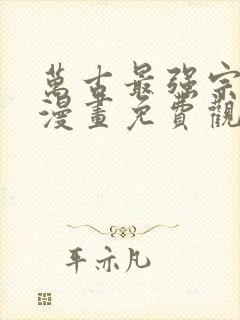 萬古最强宗
漫畫免費觀
平亦凡